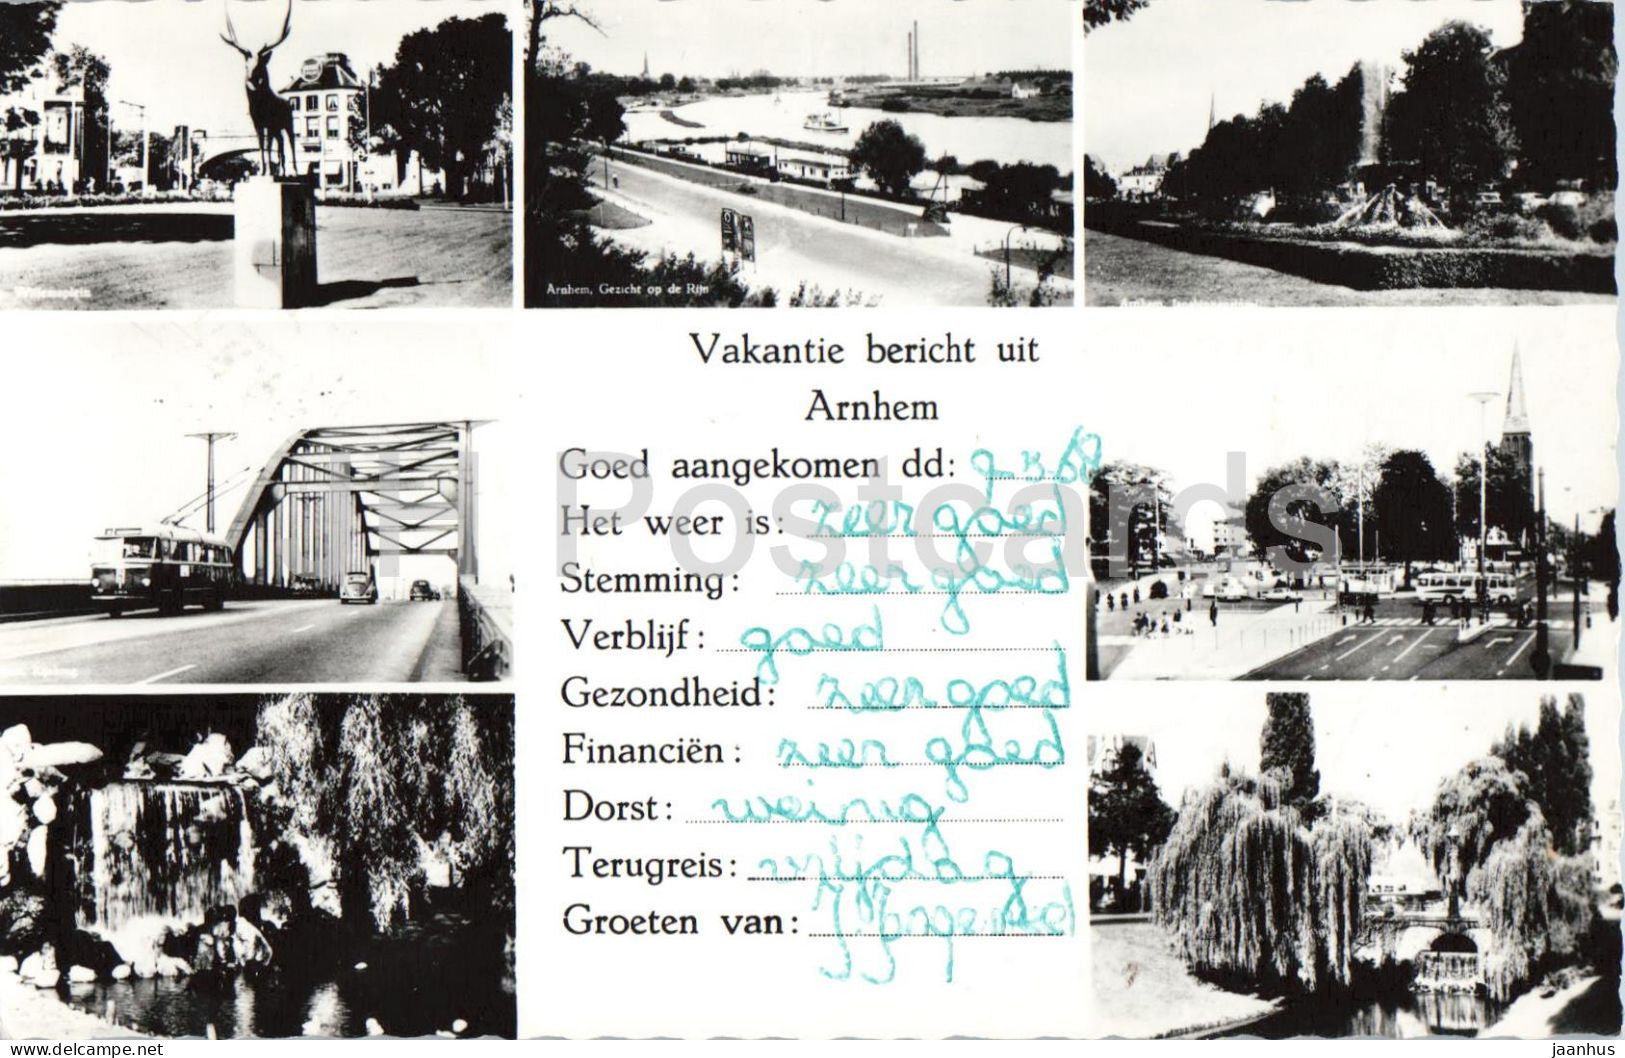 Willemsplein
Arnhem, Gezicht op de Rijn
Arnhem,
Vakantie bericht uit
Arnhem
Goed aangekomen dd: 9-5-68
Het weer is: zeer goed
Stemming: zeer goed
Verblijf: goed
Gezondheid: zeer goed
Financiën: zeer goed
Dorst: weinig
Terugreis: vrijdag
Groeten van:
JH Postcards
www.delcampe.net
jaanhus